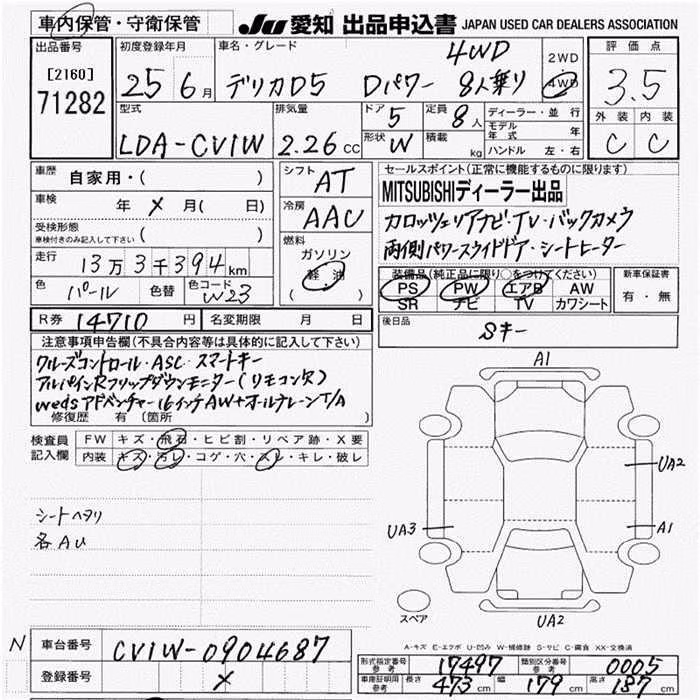 車内保管・守衛保管
JU 愛知 出品申込書 JAPAN USED CAR DEALERS ASSOCIATION
出品番号
[2160]
71282
初度登録年月
25 6月
車名・グレード
4WD
デリカD5 Dパワー 8人乗り
2WD
4WD
評価点
3.5
外装 内装
C C
型式
LDA-CV1W
排気量
2.26 CC
ドア 5
形状 W
定員 8人
積載 kg
ディーラー・並行
モデル年式 年
ハンドル 左・右
車歴 自家用・( )
車検 年 × 月( 日)
受検形態
車検付きのみ記入して下さい ( )
走行 13万3千394km
色 パール 色替 色コード W23
シフト AT
冷房 AAC
燃料
ガソリン
軽油
( )
セールスポイント(正常に機能するものに限ります)
MITSUBISHIディーラー出品
カロッツェリアナビ・TV・バックカメラ
両側パワースライドドア・シートヒーター
装備品(純正品に限り○をつけてください)
PS PW エアB AW
SR ナビ TV カワシート
新車保証書
有・無
R券 14710 円 名変期限 月 日
後日品 Sキー
注意事項申告欄(不具合内容等は具体的に記入して下さい)
クルーズコントロール・ASC・スマートキー
アルパインRフリップダウンモニター(リモコン欠)
wedsアドベンチャー16インチAW+オールテレーンT/A
修復歴 有 〔箇所
検査員記入欄
FW キズ・飛石・ヒビ割・リペア跡・X要
内装 キズ・汚レ・コゲ・穴・スレ・キレ・破レ
シートヘタリ
各AU
A1
UA2
UA3
A1
スペア
UA2
A-キズ E-エクボ U-凹み W-補修跡 S-サビ C-腐食 XX-交換済
N 車台番号 CV1W-0904687
登録番号 ×
形式指定番号 参考 17497 類別区分番号 参考 0005
車庫証明用 参考 長さ 473 cm 幅 179 cm 高さ 187 cm